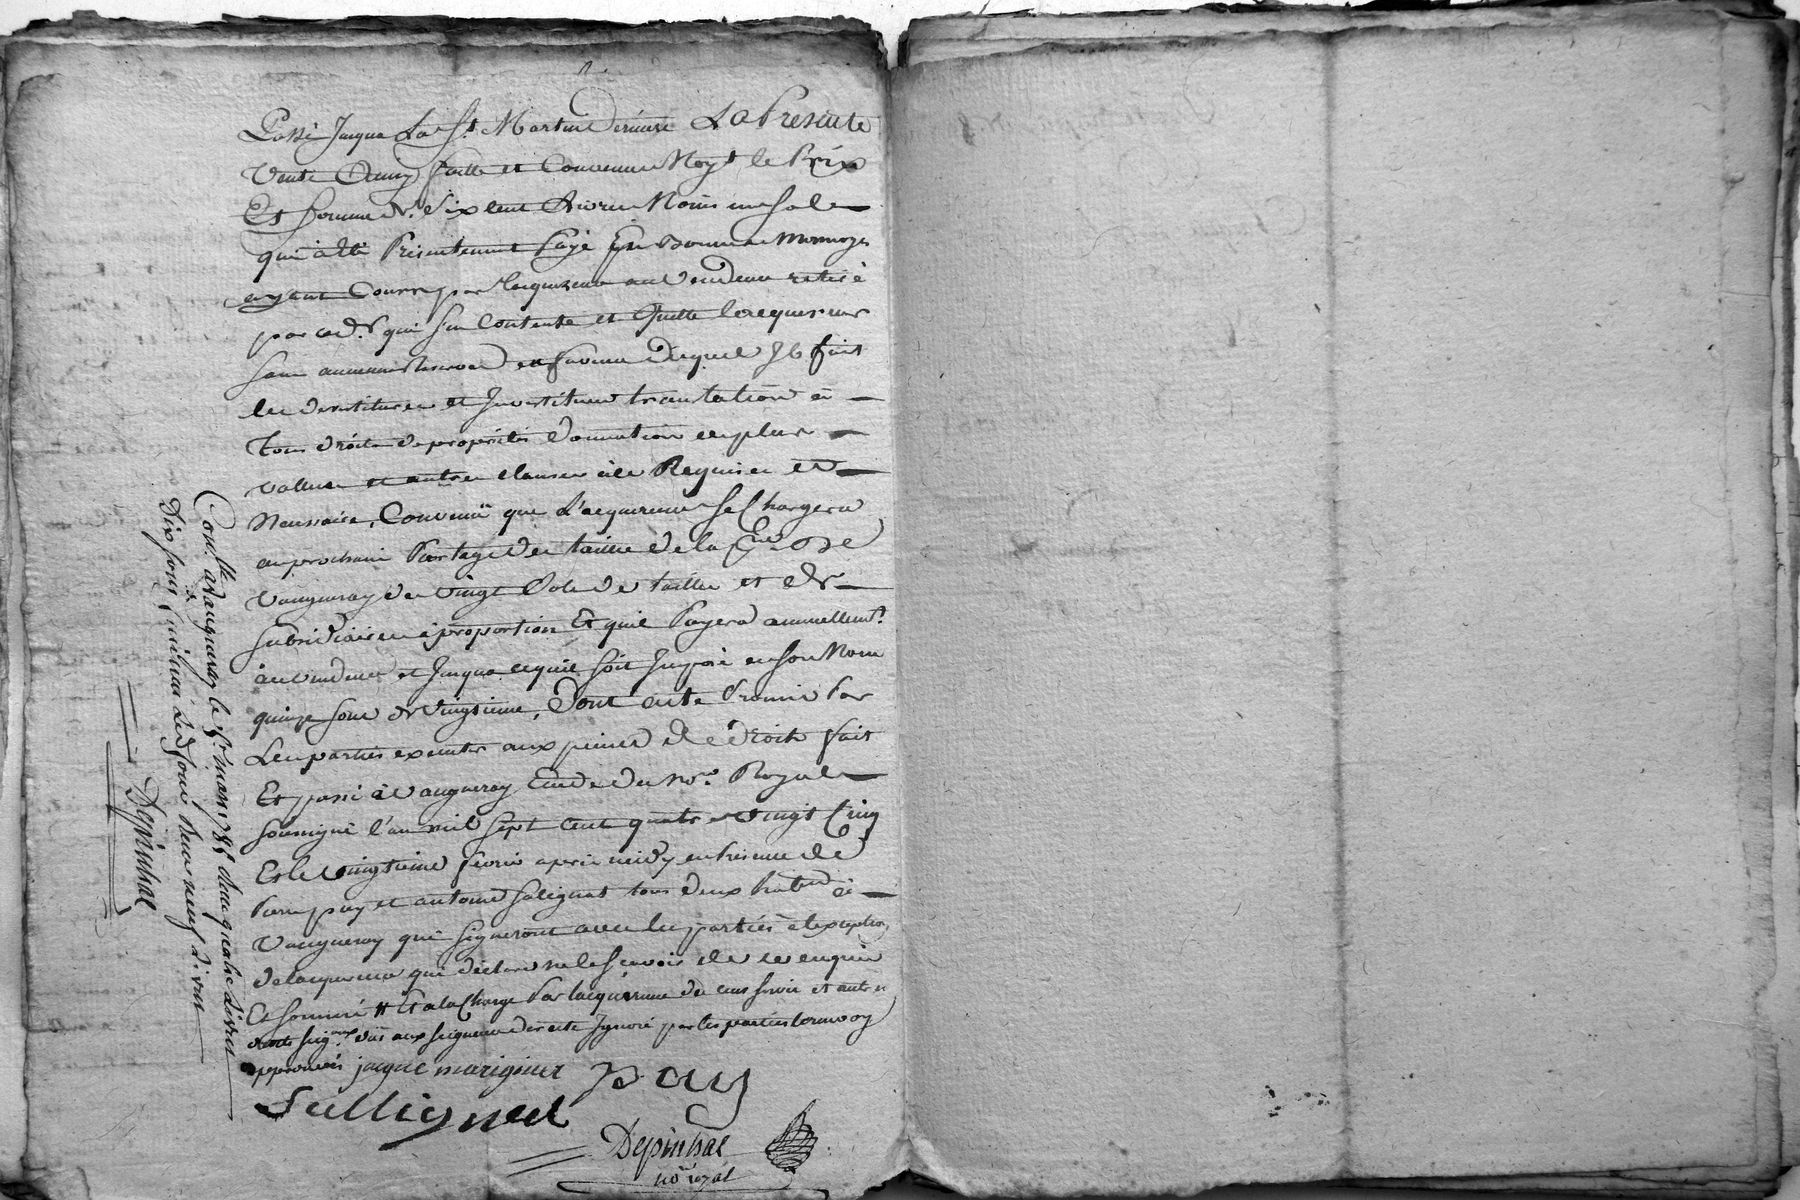 Passé Jusqua La St Martin Derniere La Presente
Vente Ainsy faitte et Convenue Moyt le Prix
Et Somme de Six Cent Livres Moins un Sol
qui à été Présentement Payé En Bonnes Monnoyes
ayant Cours par lacquereur au Vendeur retiré
par ced. qui S'en Contente et Quitte lacquereur
Sans aucunne Reserve en faveur Duquel Il fait
les devestitures et Investitures translation à
Tous droits de propriétés donnation de plus
vallue et autres clauses à ce Requises et
Necessaire, Convenü que L'acquereur Se Chargera
au prochain Partage des tailles de la De
Vaugneray de Vingt Sols de taille et des
Subsidiaires à proportion Et quil Payera annuellemt
au vendeur et Jusqua ce quil Soit Imposé en Son Nom
quinze Sous de Vingtieme, Dont acte Promis Par
Les parties executer aux peines de droit fait
Et passé à Vaugneray Etude du Nore Royal
Soussigné l'an mil Sept Cent quatre vingt Cinq
Et le vingtieme fevrier après midy en Presence de
Pierre puy et antoine Salignat tous deux à
Vaugneray qui Signeront avec les parties à lexception
de lacquereur qui déclare ne le Scavoir de ce enquis
Et Sommé # Et a la Charge Par lacquereur du cens Servis et autres
droits Seigaux düs aux Seigneurs directs Ignoré par les parties Renvoy
approuvés jaque marignier Puy
Sallignat
Depinhac
not royal
Con.lle a Vaugneray le 1er mars 1785 deux quatre Livres
Dix Sous, Led Sous deux neuf Livres
Depinhac